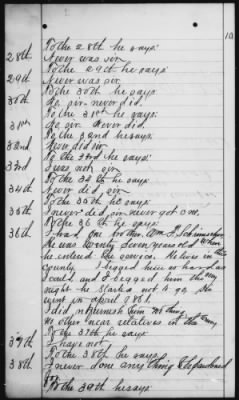 10
To the 28th he says:
28th Never was sir
To the 29th he says:
29th Never was sir
To the 30th he says:
30th No sir never did.
To the 31st he says:
31st No sir. Never did.
To the 32nd he says:
32nd Never did sir
To the 33rd he says:
33rd I was not sir
To the 34th he says:
34th Never did, sir
To the 35th he says:
35th I never did sir never got one.
To the 36th he says:
36th I had one brother, Wm
He was twenty seven years old when
he entered the service. He lives in this
county. I begged him as hard as I
could, and I begged him the
night he started not to go. He
went in April 1861.
I did not furnish him nothing
No other near relatives in the army
To the 37th he says:
37th I have not
To the 38th he says:
38th I never done any thing
To the 39th he says: